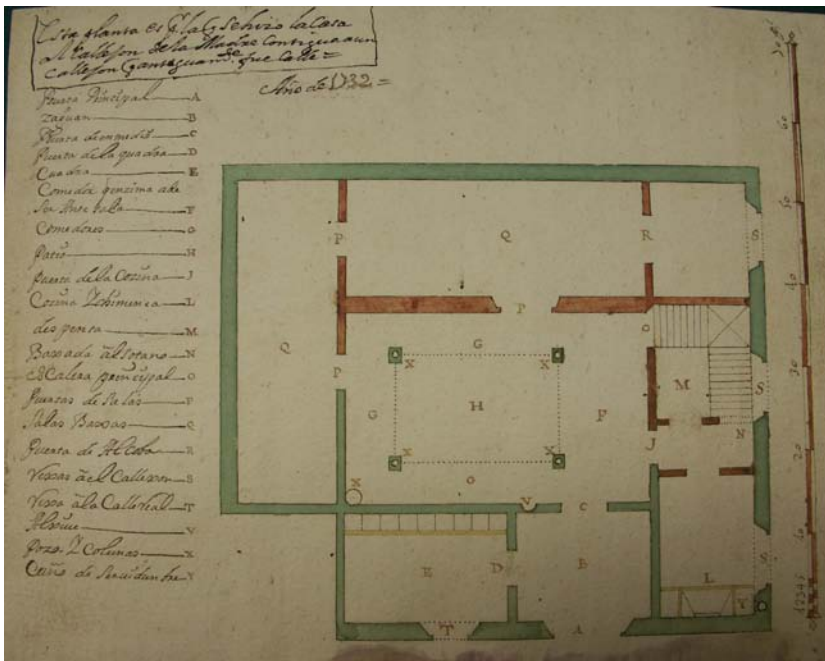 Esta planta es de la Casa
Callejon de la Madre Contigua a un
callejon que antiguam.te fue Calle =
Año de 1732 =
Puerta Principal A
Zaguan B
Puerta de en medio C
Puerta de la quadra D
Cuadra E
Comedor
F
Comedores G
Patio H
Puerta de la Cozina J
Cozina Y chimenea L
despensa M
Baxada al sotano N
esCalera prinzipal O
Puertas de Salas P
Salas Baxas Q
Puerta de Alcoba R
Rexas a el Callexon S
Rexa a la Calle real T
Alxive V
Pozo. Y Colunas X
Caño de Seruidunbre Y
P Q R S
P
O
G
Q P X X M S
G H F
J N
X X
X O
V C
S
E D B L
Y
T A
60
50
40
30
20
10
1 2 3 4 5